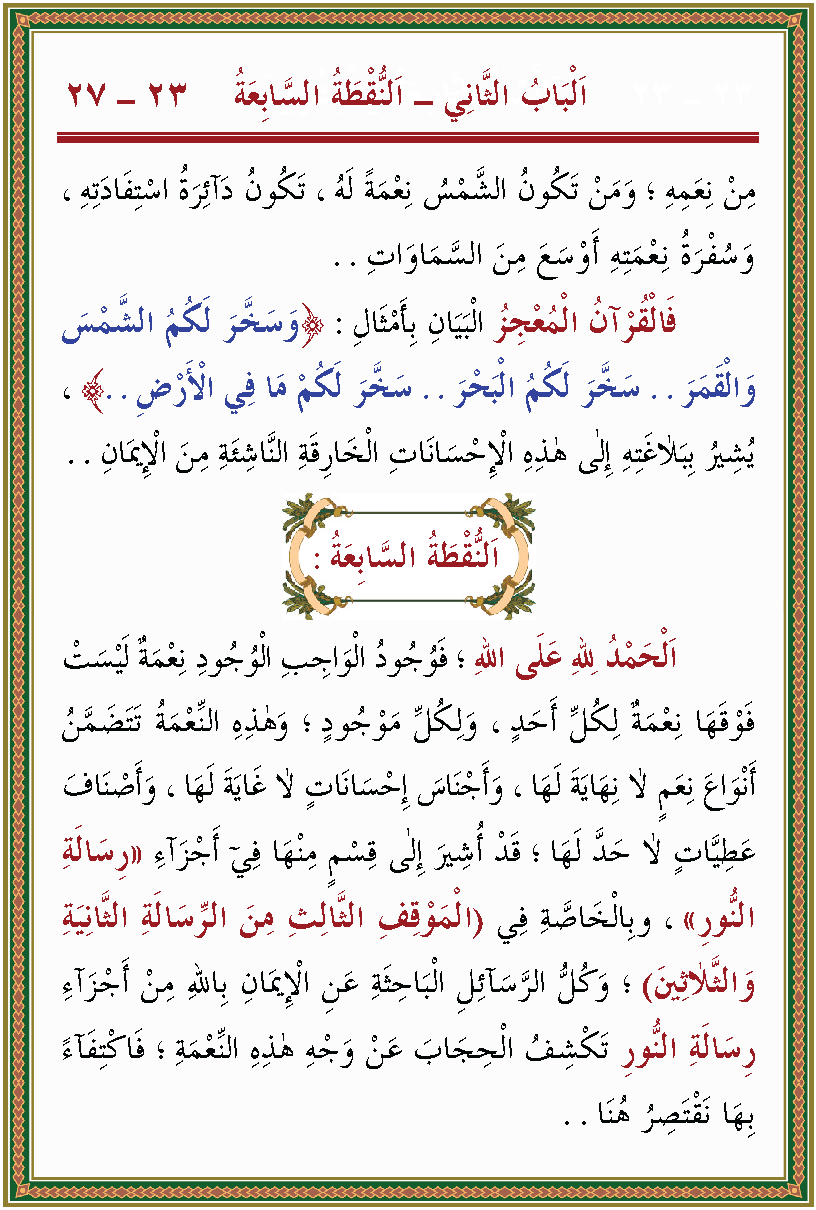 اَلْبَابُ الثَّانِي ـ اَلنُّقْطَةُ السَّابِعَةُ ٢٣ ـ ٢٧
مِنْ نِعَمِهِ ؛ وَمَنْ تَكُونُ الشَّمْسُ نِعْمَةً لَهُ ، تَكُونُ دَآئِرَةُ اسْتِفَادَتِهِ ،
وَسُفْرَةُ نِعْمَتِهِ أَوْسَعَ مِنَ السَّمَاوَاتِ . .
فَالْقُرْآنُ الْمُعْجِزُ الْبَيَانِ بِأَمْثَالِ : ﴿وَسَخَّرَ لَكُمُ الشَّمْسَ
وَالْقَمَرَ . . سَخَّرَ لَكُمُ الْبَحْرَ . . سَخَّرَ لَكُمْ مَا فِي الْأَرْضِ . .﴾ ،
يُشِيرُ بِبَلَاغَتِهِ إِلَى هٰذِهِ الْإِحْسَانَاتِ الْخَارِقَةِ النَّاشِئَةِ مِنَ الْإِيمَانِ . .
اَلنُّقْطَةُ السَّابِعَةُ :
اَلْحَمْدُ لِلهِ عَلَى اللهِ ؛ فَوُجُودُ الْوَاجِبِ الْوُجُودِ نِعْمَةٌ لَيْسَتْ
فَوْقَهَا نِعْمَةٌ لِكُلِّ أَحَدٍ ، وَلِكُلِّ مَوْجُودٍ ؛ وَهٰذِهِ النِّعْمَةُ تَتَضَمَّنُ
أَنْوَاعَ نِعَمٍ لَا نِهَايَةَ لَهَا ، وَأَجْنَاسَ إِحْسَانَاتٍ لَا غَايَةَ لَهَا ، وَأَصْنَافَ
عَطِيَّاتٍ لَا حَدَّ لَهَا ؛ قَدْ أُشِيرَ إِلَى قِسْمٍ مِنْهَا فِيٓ أَجْزَآءِ «رِسَالَةِ
النُّورِ» ، وبِالْخَاصَّةِ فِي (الْمَوْقِفِ الثَّالِثِ مِنَ الرِّسَالَةِ الثَّانِيَةِ
وَالثَّلَاثِينَ) ؛ وَكُلُّ الرَّسَآئِلِ الْبَاحِثَةِ عَنِ الْإِيمَانِ بِاللهِ مِنْ أَجْزَآءِ
رِسَالَةِ النُّورِ تَكْشِفُ الْحِجَابَ عَنْ وَجْهِ هٰذِهِ النِّعْمَةِ ؛ فَاكْتِفَآءً
بِهَا نَقْتَصِرُ هُنَا . .